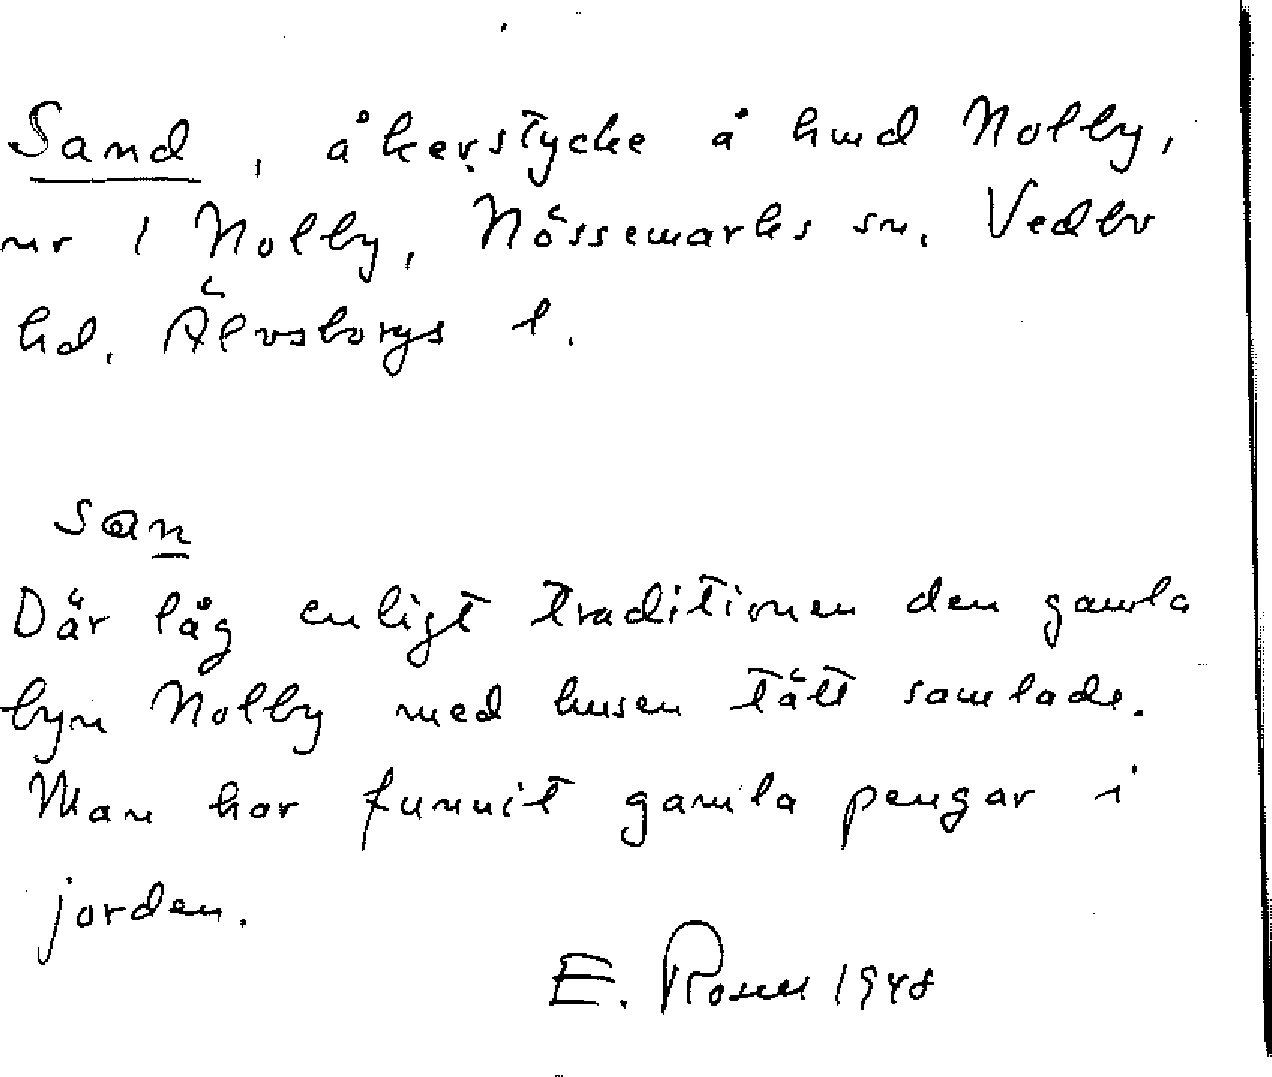 Sand, åkerstycke å hmd Nolby,
nr 1 Nolby, Nössemarks sn. Vedbo
hd. Älvsborgs l.
san
Där låg enligt traditionen den gamla
byn Nolby med husen tätt samlade.
Man har funnit gamla pengar i
jorden.
E. Rosell 1948